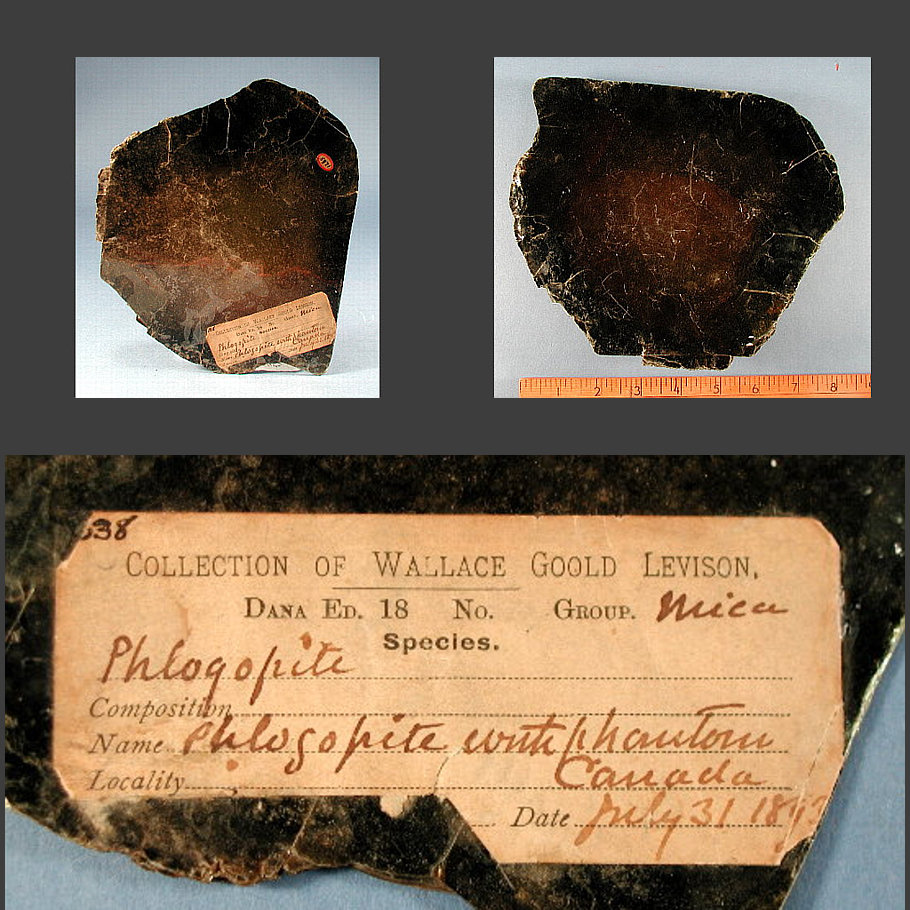 1 2 3 4 5 6 7 8
638
COLLECTION OF WALLACE GOOLD LEVISON,
DANA ED. 18 No. GROUP. Mica
Species.
Phlogopite
Composition
Name Phlogopite with phantom
Locality Canada
Date July 31 1893